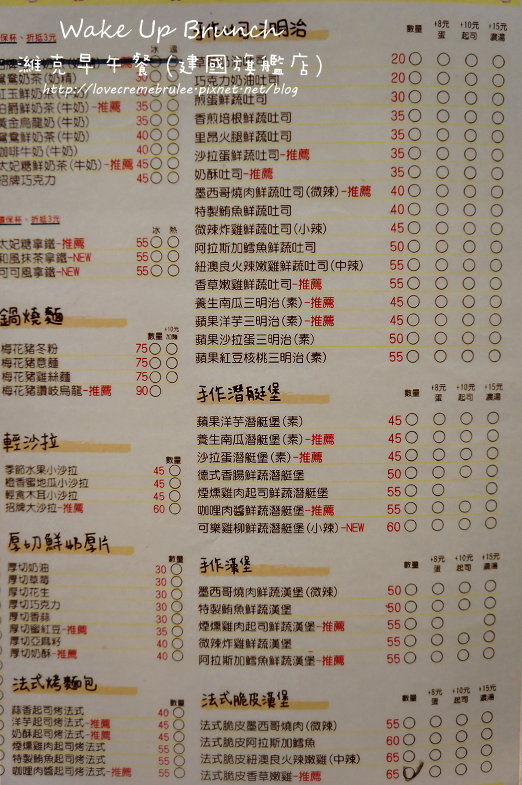 Wake Up Brunch
維克早午餐 (建國旗艦店)
http://lovecremebrulee.pixnet.net/blog
保杯、折抵3元
冰 溫
鴛鴦奶茶(奶精)
紅玉鮮奶茶(牛奶)
伯爵鮮奶茶(牛奶)-推薦 35
黃金烏龍奶(牛奶) 35
鴛鴦奶茶(牛奶) 40
咖啡牛奶(牛奶) 40
太妃糖鮮奶茶(牛奶)-推薦 45
招牌巧克力 45
環保杯、折抵3元
冰 熱
太妃糖拿鐵-推薦 55
和風抹茶拿鐵-NEW 55
可可風拿鐵-NEW 55
鍋燒麵
數量 +10元加麵
梅花豬冬粉 75
梅花豬意麵 75
梅花豬雞絲麵 75
梅花豬讚岐烏龍-推薦 90
輕沙拉
數量
季節水果小沙拉 45
橙香蜜地瓜小沙拉 45
輕食木耳小沙拉 45
招牌大沙拉-推薦 60
厚切鮮奶厚片
數量
厚切奶油 30
厚切草莓 30
厚切花生 30
厚切巧克力 30
厚切香蒜 30
厚切蜜紅豆-推薦 35
厚切亞麻籽 40
厚切奶酥-推薦 40
法式烤麵包
數量
蒜香起司烤法式 40
洋芋起司烤法式-推薦 45
奶酥起司烤法式-推薦 45
煙燻雞肉起司烤法式 55
特製鮪魚起司烤法式 55
咖哩肉醬起司烤法式-推薦 55
數量 +8元蛋 +10元起司 +15元濃湯
20
巧克力奶油吐司 20
煎蛋鮮蔬吐司 35
香煎培根鮮蔬吐司 35
里昂火腿鮮蔬吐司 35
沙拉蛋鮮蔬吐司-推薦 35
奶酥吐司-推薦 35
墨西哥燒肉鮮蔬吐司(微辣)-推薦 40
特製鮪魚鮮蔬吐司 40
微辣炸雞鮮蔬吐司(小辣) 45
阿拉斯加鱈魚鮮蔬吐司 50
紐澳良火辣嫩雞鮮蔬吐司(中辣) 55
香草嫩雞鮮蔬吐司-推薦 55
養生南瓜三明治(素)-推薦 45
蘋果洋芋三明治(素)-推薦 45
蘋果沙拉蛋三明治(素) 50
蘋果紅豆核桃三明治(素) 55
手作潛艇堡
數量 +8元蛋 +10元起司 +15元濃湯
蘋果洋芋潛艇堡(素) 45
養生南瓜潛艇堡(素)-推薦 45
沙拉蛋潛艇堡(素)-推薦 45
德式香腸鮮蔬潛艇堡 50
煙燻雞肉起司鮮蔬潛艇堡 55
咖哩肉醬鮮蔬潛艇堡-推薦 55
可樂雞柳鮮蔬潛艇堡(小辣)-NEW 60
手作漢堡
數量 +8元蛋 +10元起司 +15元濃湯
墨西哥燒肉鮮蔬漢堡(微辣) 50
特製鮪魚鮮蔬漢堡 50
煙燻雞肉起司鮮蔬漢堡-推薦 55
微辣炸雞鮮蔬漢堡 55
阿拉斯加鱈魚鮮蔬漢堡-推薦 55
法式脆皮漢堡
數量 +8元蛋 +10元起司 +15元濃湯
法式脆皮墨西哥燒肉(微辣) 55
法式脆皮阿拉斯加鱈魚 60
法式脆皮紐澳良火辣嫩雞(中辣) 65
法式脆皮香草嫩雞-推薦 65